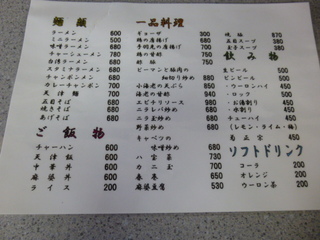 麺 類
ラーメン 600
ミニラーメン 500
味噌ラーメン 680
チャーシューメン 780
台湾ラーメン 680
スタミナラーメン 680
チャンポンメン 680
カレーチャンポン 780
天津麺 700
五目そば 680
焼きそば 680
あげそば 680
ご飯物
チャーハン 600
天津飯 600
中華丼 600
麻婆丼 600
ライス 200
一品料理
ギョーザ 300
鶏の唐揚げ 680
手羽先の唐揚げ 700
鶏の甘酢 750
酢豚 750
ピーマンと豚肉の
細切り炒め 880
小海老の天ぷら 850
海老の甘酢 940
エビチリソース 980
ニラレバ炒め 680
ニラ玉炒め 680
野菜炒め 680
キャベツの
味噌炒め 680
八宝菜 730
カニ玉 700
春巻 650
麻婆豆腐 530
焼豚 870
五目スープ 380
玉子スープ 380
飲み物
生ビール 500
ビンビール 500
・ウーロンハイ 450
・ロック 500
・お湯割り 450
・水割り 450
チューハイ 450
(レモン・ライム・梅)
菊正宗 450
ソフトドリンク
コーラ 200
オレンジ 200
ウーロン茶 200